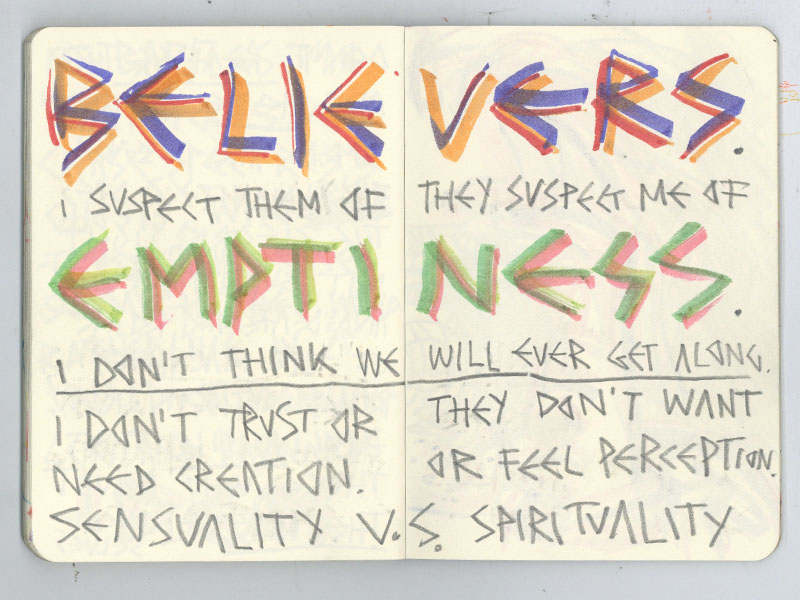 BELIEVERS.
I SUSPECT THEM OF THEY SUSPECT ME OF
EMPTINESS.
I DON'T THINK WE WILL EVER GET ALONG.
I DON'T TRUST OR THEY DON'T WANT
NEED CREATION. OR FEEL PERCEPTION.
SENSUALITY V.S. SPIRITUALITY